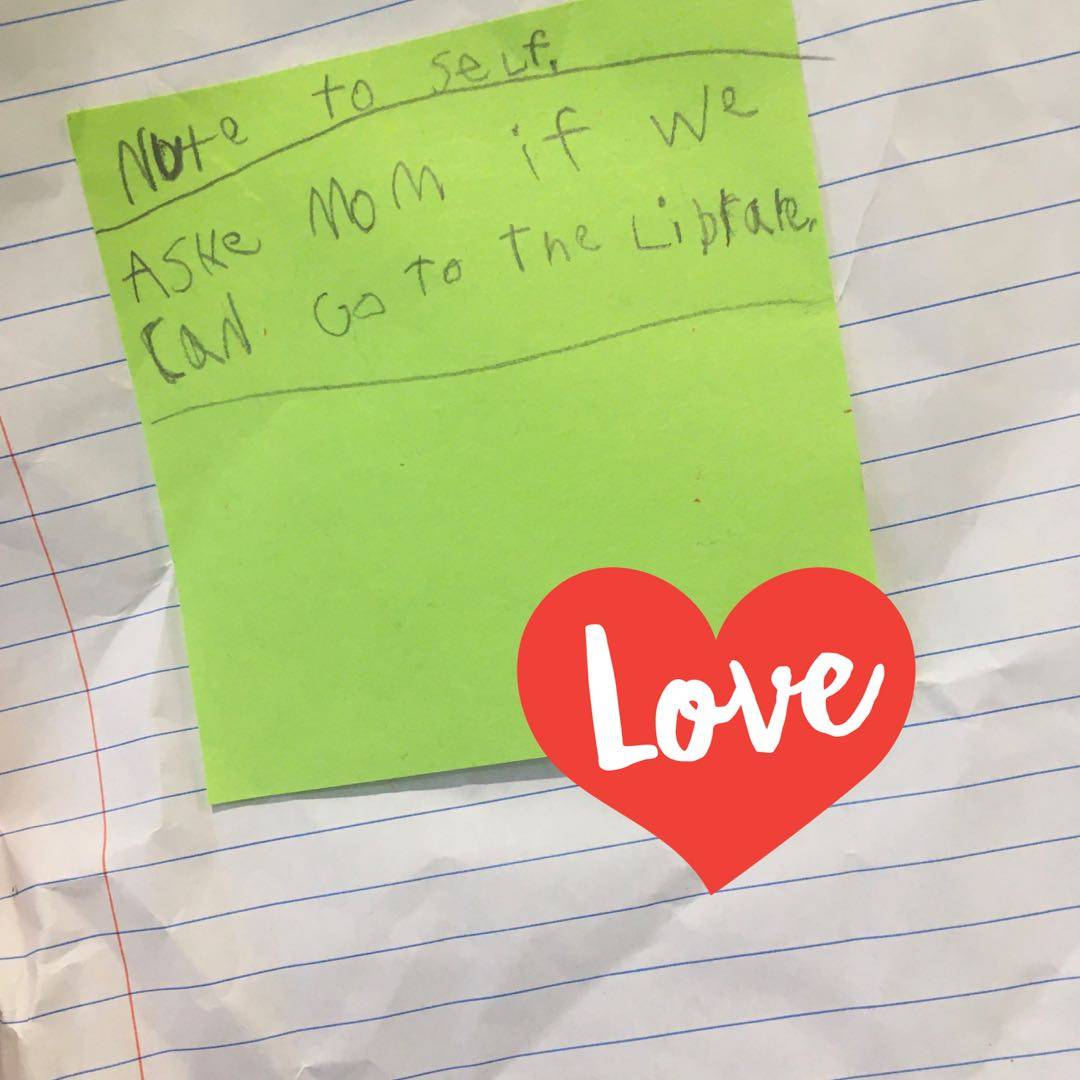 Note to self.
Aske Mom if we
can go to the Librare.
Love